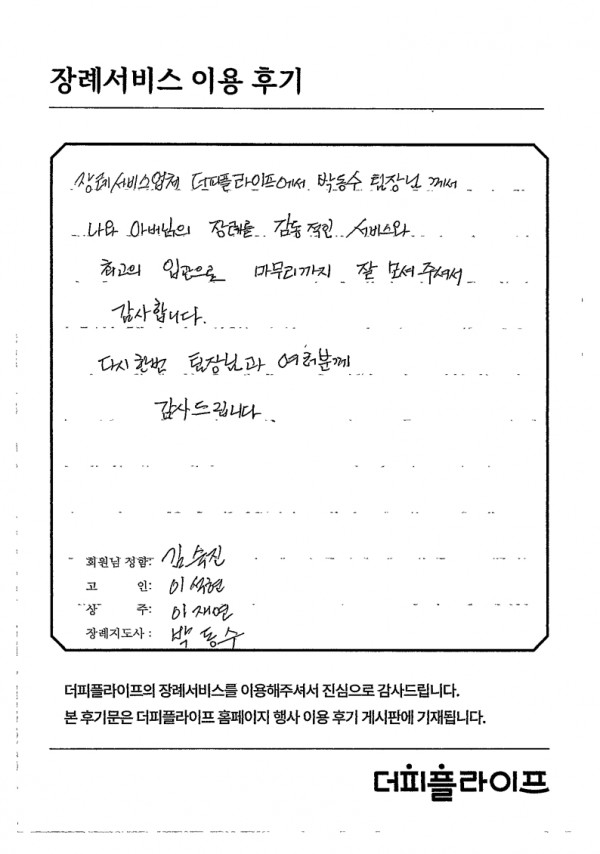 장례서비스 이용 후기
장례서비스업체 더피플라이프에서 박동수 팀장님 께서
나의 아버님의 장례를 감동적인 서비스와
최고의 입관으로 마무리까지 잘 모셔주셔서
감사합니다.
다시한번 팀장님과 여러분께
감사드립니다
회원님 성함: 김숙진
고 인: 이석현
상 주: 이재연
장례지도사: 박동수
더피플라이프의 장례서비스를 이용해주셔서 진심으로 감사드립니다.
본 후기문은 더피플라이프 홈페이지 행사 이용 후기 게시판에 기재됩니다.
더피플라이프